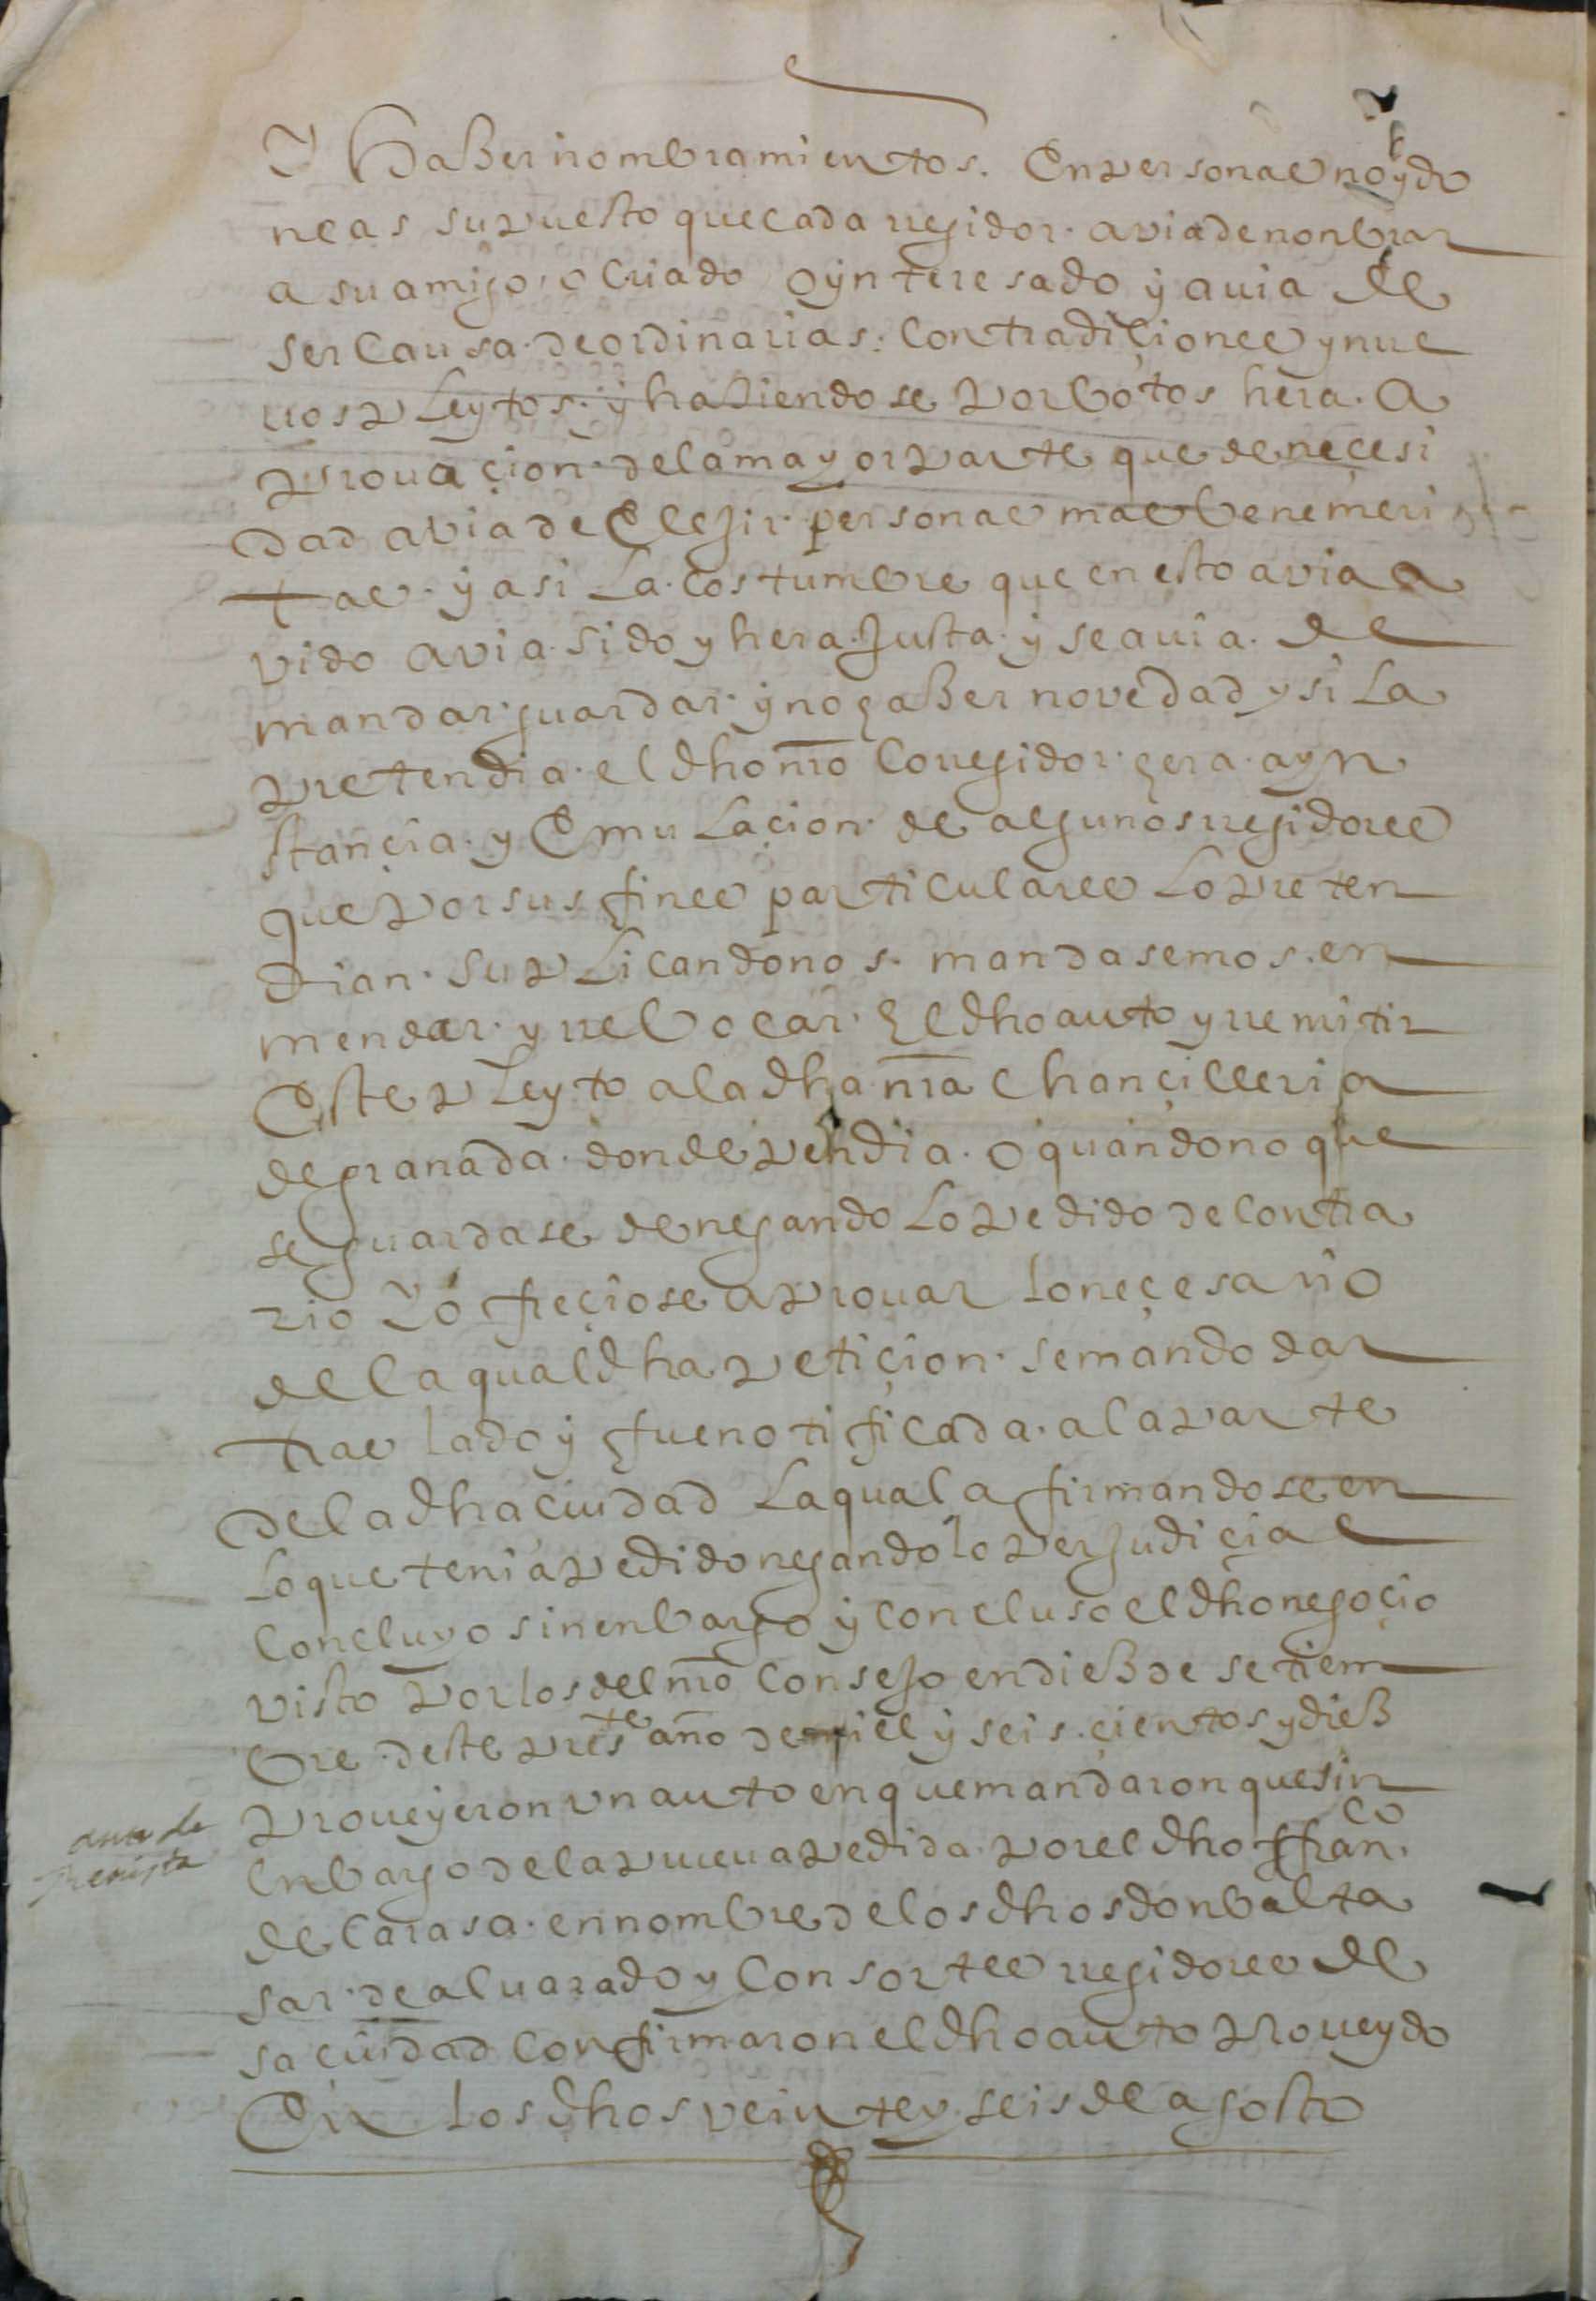 y haber nombramientos. en personas no ydo
neas supuesto que cada rregidor. avia de nonbrar
a su amigo, o criado o ynteresado y auia de
ser causa. de ordinarias. contradiçiones y nue
uos pleytos. y haciendose por botos hera. a
prouaçion. de la mayor parte que de neçesi
dad avia de elegir. personas mas benemeri
tas. y asi la. costumbre que en esto avia a
vido avia. sido y hera. justa. y se auia. de
mandar. guardar. y no haber novedad y si la
pretendia. el dho nro corregidor. hera. a yn
stançia. y emulaçion. de algunos rregidores
que por sus fines particulares lo preten
dian. suplicandonos. mandasemos. en
mendar. y rrebocar. el dho auto y rremitir
este pleyto a la dha nra chançilleria
de granada. donde pendia. o quando no que
se guardase denegando lo pedido de contra
rio y ofreçiose a prouar lo neçesario
de la qual dha petiçion. se mando dar
traslado y fue notificada. a la parte
de la dha ciudad la qual afirmandose en
lo que tenia pedido negando lo perjudiçial
concluyo sin enbargo y concluso el dho negoçio
visto por los del nro consejo en dieß de setiem
bre. deste preste año de mill y seis. çientos y dieß
proueyeron vn auto en que mandaron que sin
enbargo de la prueua pedida. por el dho ffranco.
de carasa. en nombre de los dhos don balta
sar. de aluarado y consortes rregidores de
sa ciudad confirmaron el dho auto proueydo
en los dhos veinte y seis de agosto
auto de
reuista